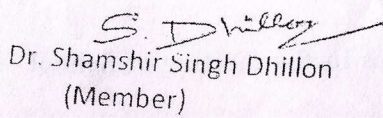 S. Dhillon
Dr. Shamshir Singh Dhillon
(Member)